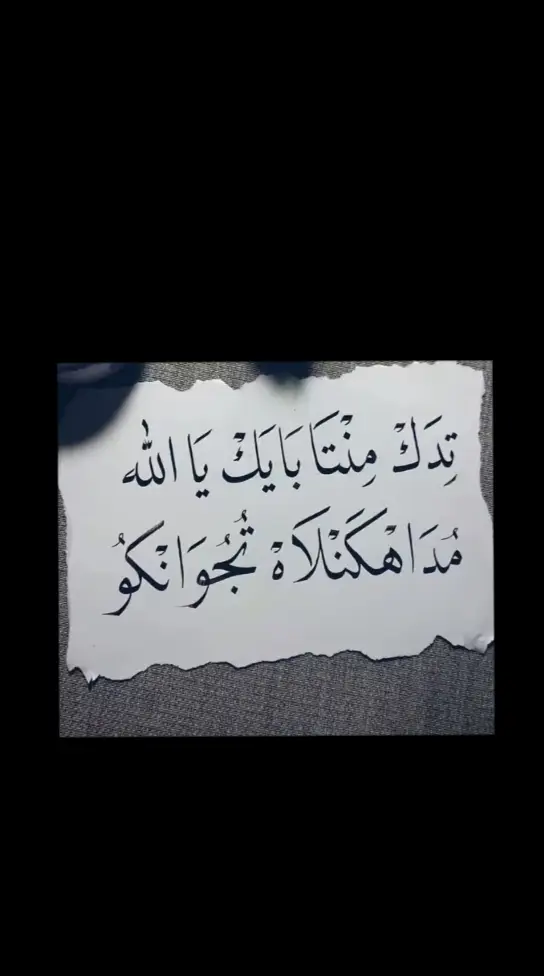 تِدَكْ مِنْتَا بَايَكْ يَا الله
مُدَاهْكَنْلَاهْ تُجُوَانْكُو